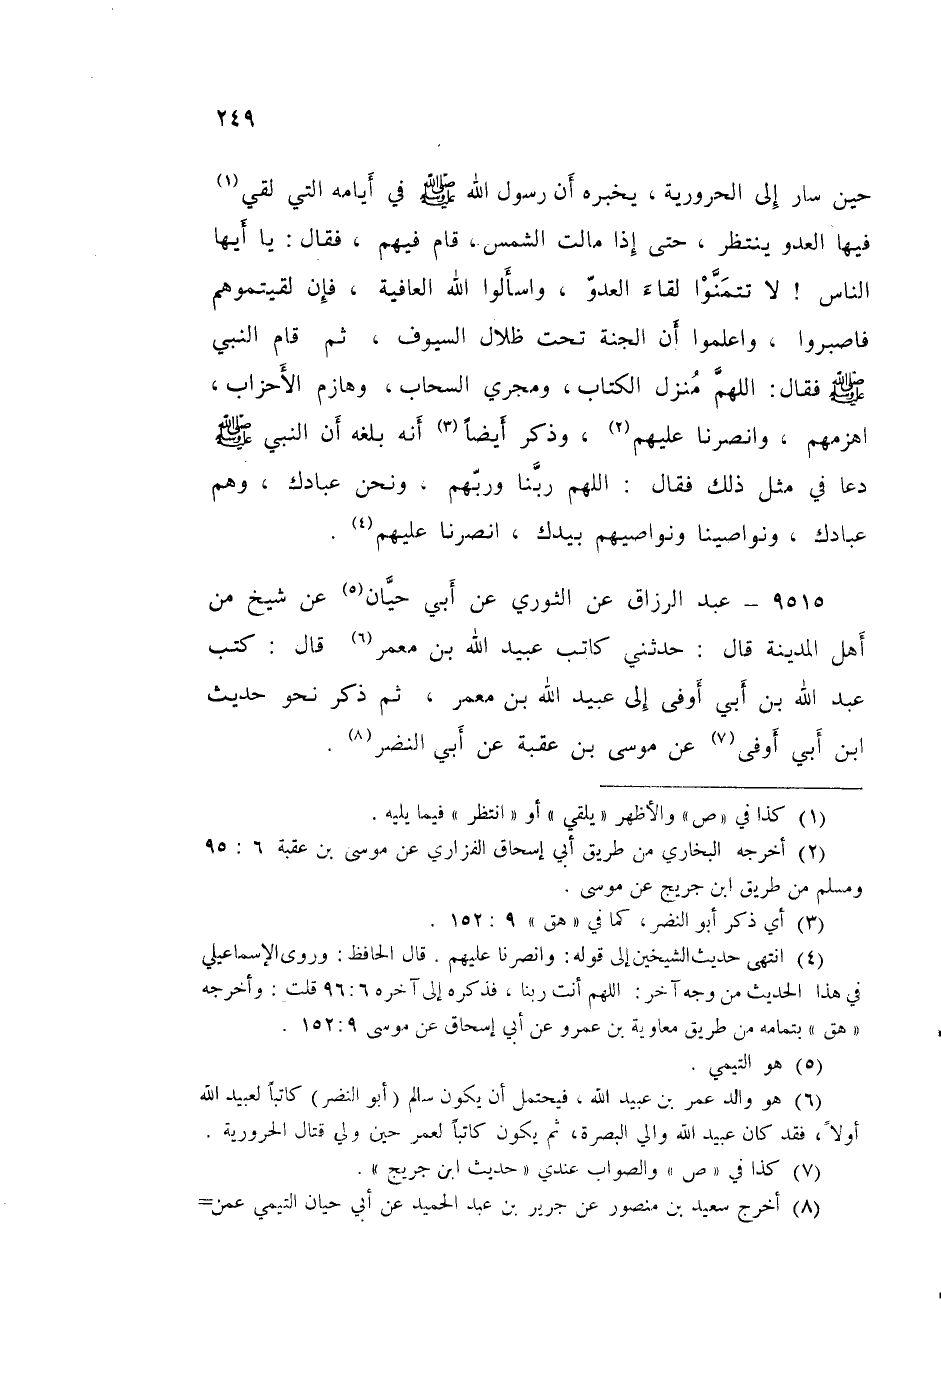 ٢٤٩
حين سار إلى الحرورية ، يخبره أن رسول الله ﷺ في أيامه التي لقي(١)
فيها العدو ينتظر ، حتى إذا مالت الشمس ، قام فيهم ، فقال : يا أيها
الناس ! لا تتمَنَّوْا لقاءَ العدوّ ، واسألوا الله العافية ، فإن لقيتموهم
فاصبروا ، واعلموا أن الجنة تحت ظلال السيوف ، ثم قام النبي
ﷺ فقال : اللهمَّ مُنزل الكتاب ، ومجري السحاب ، وهازم الأحزاب ،
اهزمهم ، وانصرنا عليهم(٢) ، وذكر أيضاً(٣) أنه بلغه أن النبي ﷺ
دعا في مثل ذلك فقال : اللهم ربَّنا وربّهم ، ونحن عبادك ، وهم
عبادك ، ونواصينا ونواصيهم بيدك ، انصرنا عليهم(٤) .
٩٥١٥ – عبد الرزاق عن الثوري عن أبي حيَّان(٥) عن شيخ من
أهل المدينة قال : حدثني كاتب عبيد الله بن معمر(٦) قال : كتب
عبد الله بن أبي أوفى إلى عبيد الله بن معمر ، ثم ذكر نحو حديث
ابن أبي أوفى(٧) عن موسى بن عقبة عن أبي النضر(٨) .
(١) كذا في «ص» والأظهر «يلقي» أو «انتظر» فيما يليه .
(٢) أخرجه البخاري من طريق أبي إسحاق الفزاري عن موسى بن عقبة ٦ : ٩٥
ومسلم من طريق ابن جريج عن موسى .
(٣) أي ذكر أبو النضر ، كما في « هق » ٩ : ١٥٢ .
(٤) انتهى حديث الشيخين إلى قوله : وانصرنا عليهم . قال الحافظ : وروى الإسماعيلي
في هذا الحديث من وجه آخر : اللهم أنت ربنا ، فذكره إلى آخره ٦ : ٩٦ قلت : وأخرجه
« هق » بتمامه من طريق معاوية بن عمرو عن أبي إسحاق عن موسى ٩ : ١٥٢ .
(٥) هو التيمي .
(٦) هو والد عمر بن عبيد الله ، فيحتمل أن يكون سالم ( أبو النضر ) كاتباً لعبيد الله
أولاً ، فقد كان عبيد الله والي البصرة ، ثم يكون كاتباً لعمر حين ولي قتال الحرورية .
(٧) كذا في « ص » والصواب عندي « حديث ابن جريج » .
(٨) أخرج سعيد بن منصور عن جرير بن عبد الحميد عن أبي حيان التيمي عمن=